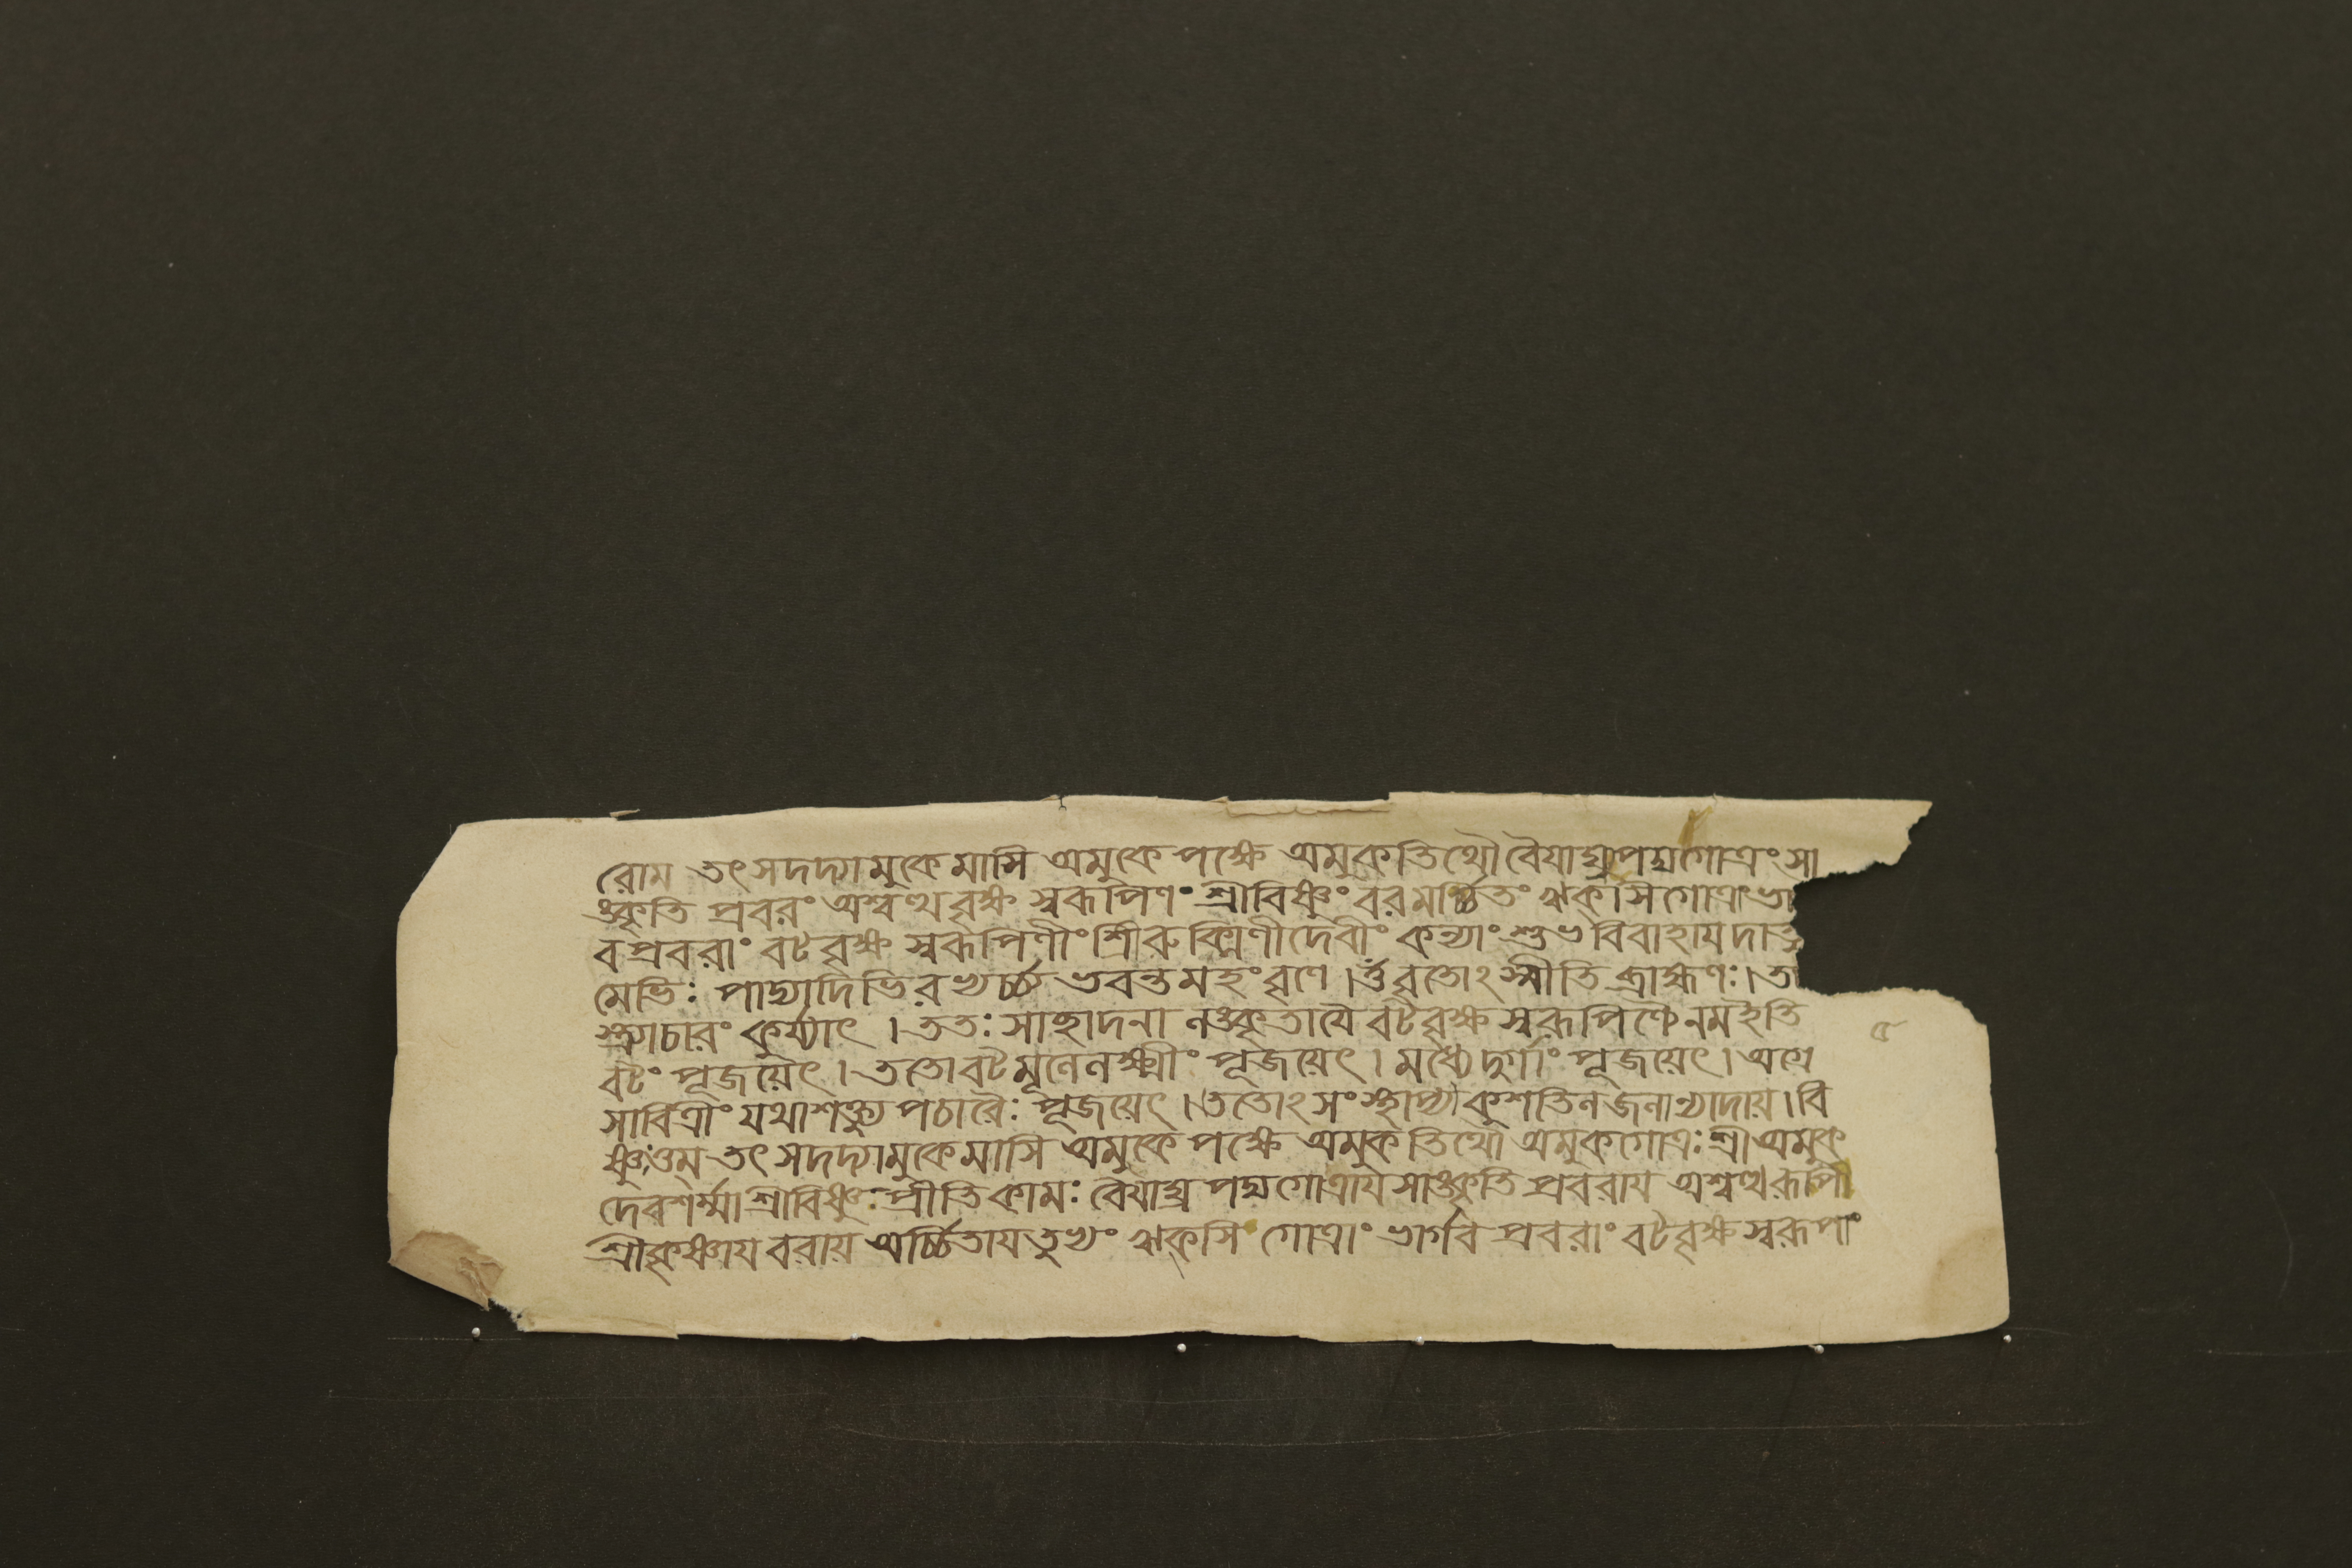 রোম তৎসদদ্যামুকেমাসি অমুকেপক্ষে অমুকতিথৌবৈয়াঘ্রপদ্যগোত্রং সা
ঙ্কৃতি প্রবরং অশ্বত্থবৃক্ষ স্বরূপিণং শ্রীবিষ্ণুং বরমর্চ্চিতং গোত্রাং ভা
বপ্রবরাং বটবৃক্ষ স্বরূপিণীং শ্রীরুক্মিণীদেবীং কন্যাং শুভবিবাহায়দাতু
মেভিঃ পাদ্যাদিভিরভ্যর্চ্চ্য ভবন্তমহংবৃণে।ওঁবৃতোঽস্মীতিব্রাহ্মণঃ।ত
স্ত্র্যাচারং কুর্য্যাৎ । ততঃ বটবৃক্ষ স্বরূপিণ্যৈনমইতি
বটং পূজয়েৎ।ততোবটমূলেলক্ষ্মীং পূজয়েৎ। মধ্যেদুর্গাং পূজয়েৎ।অগ্রে
সাবিত্রীং যথাশক্ত্যুপচারৈঃ পূজয়েৎ। কুশতিলজলান্যাদায়।বি
ষ্ণুঃওম্ তৎসদদ্যামুকেমাসি অমুকেপক্ষে অমুকতিথৌ অমুকগোত্রঃ শ্রীঅমুক
দেবশর্ম্মা শ্রীবিষ্ণুপ্রীতিকামঃ বৈয়াঘ্রপদ্যগোত্রায়সাঙ্কৃতি প্রবরায় অশ্বত্থরূপি
শ্রীকৃষ্ণায়বরায় অর্চ্চিতায়তুভ্যং গোত্রাং ভার্গব প্রবরাং বটবৃক্ষস্বরূপাং
৫